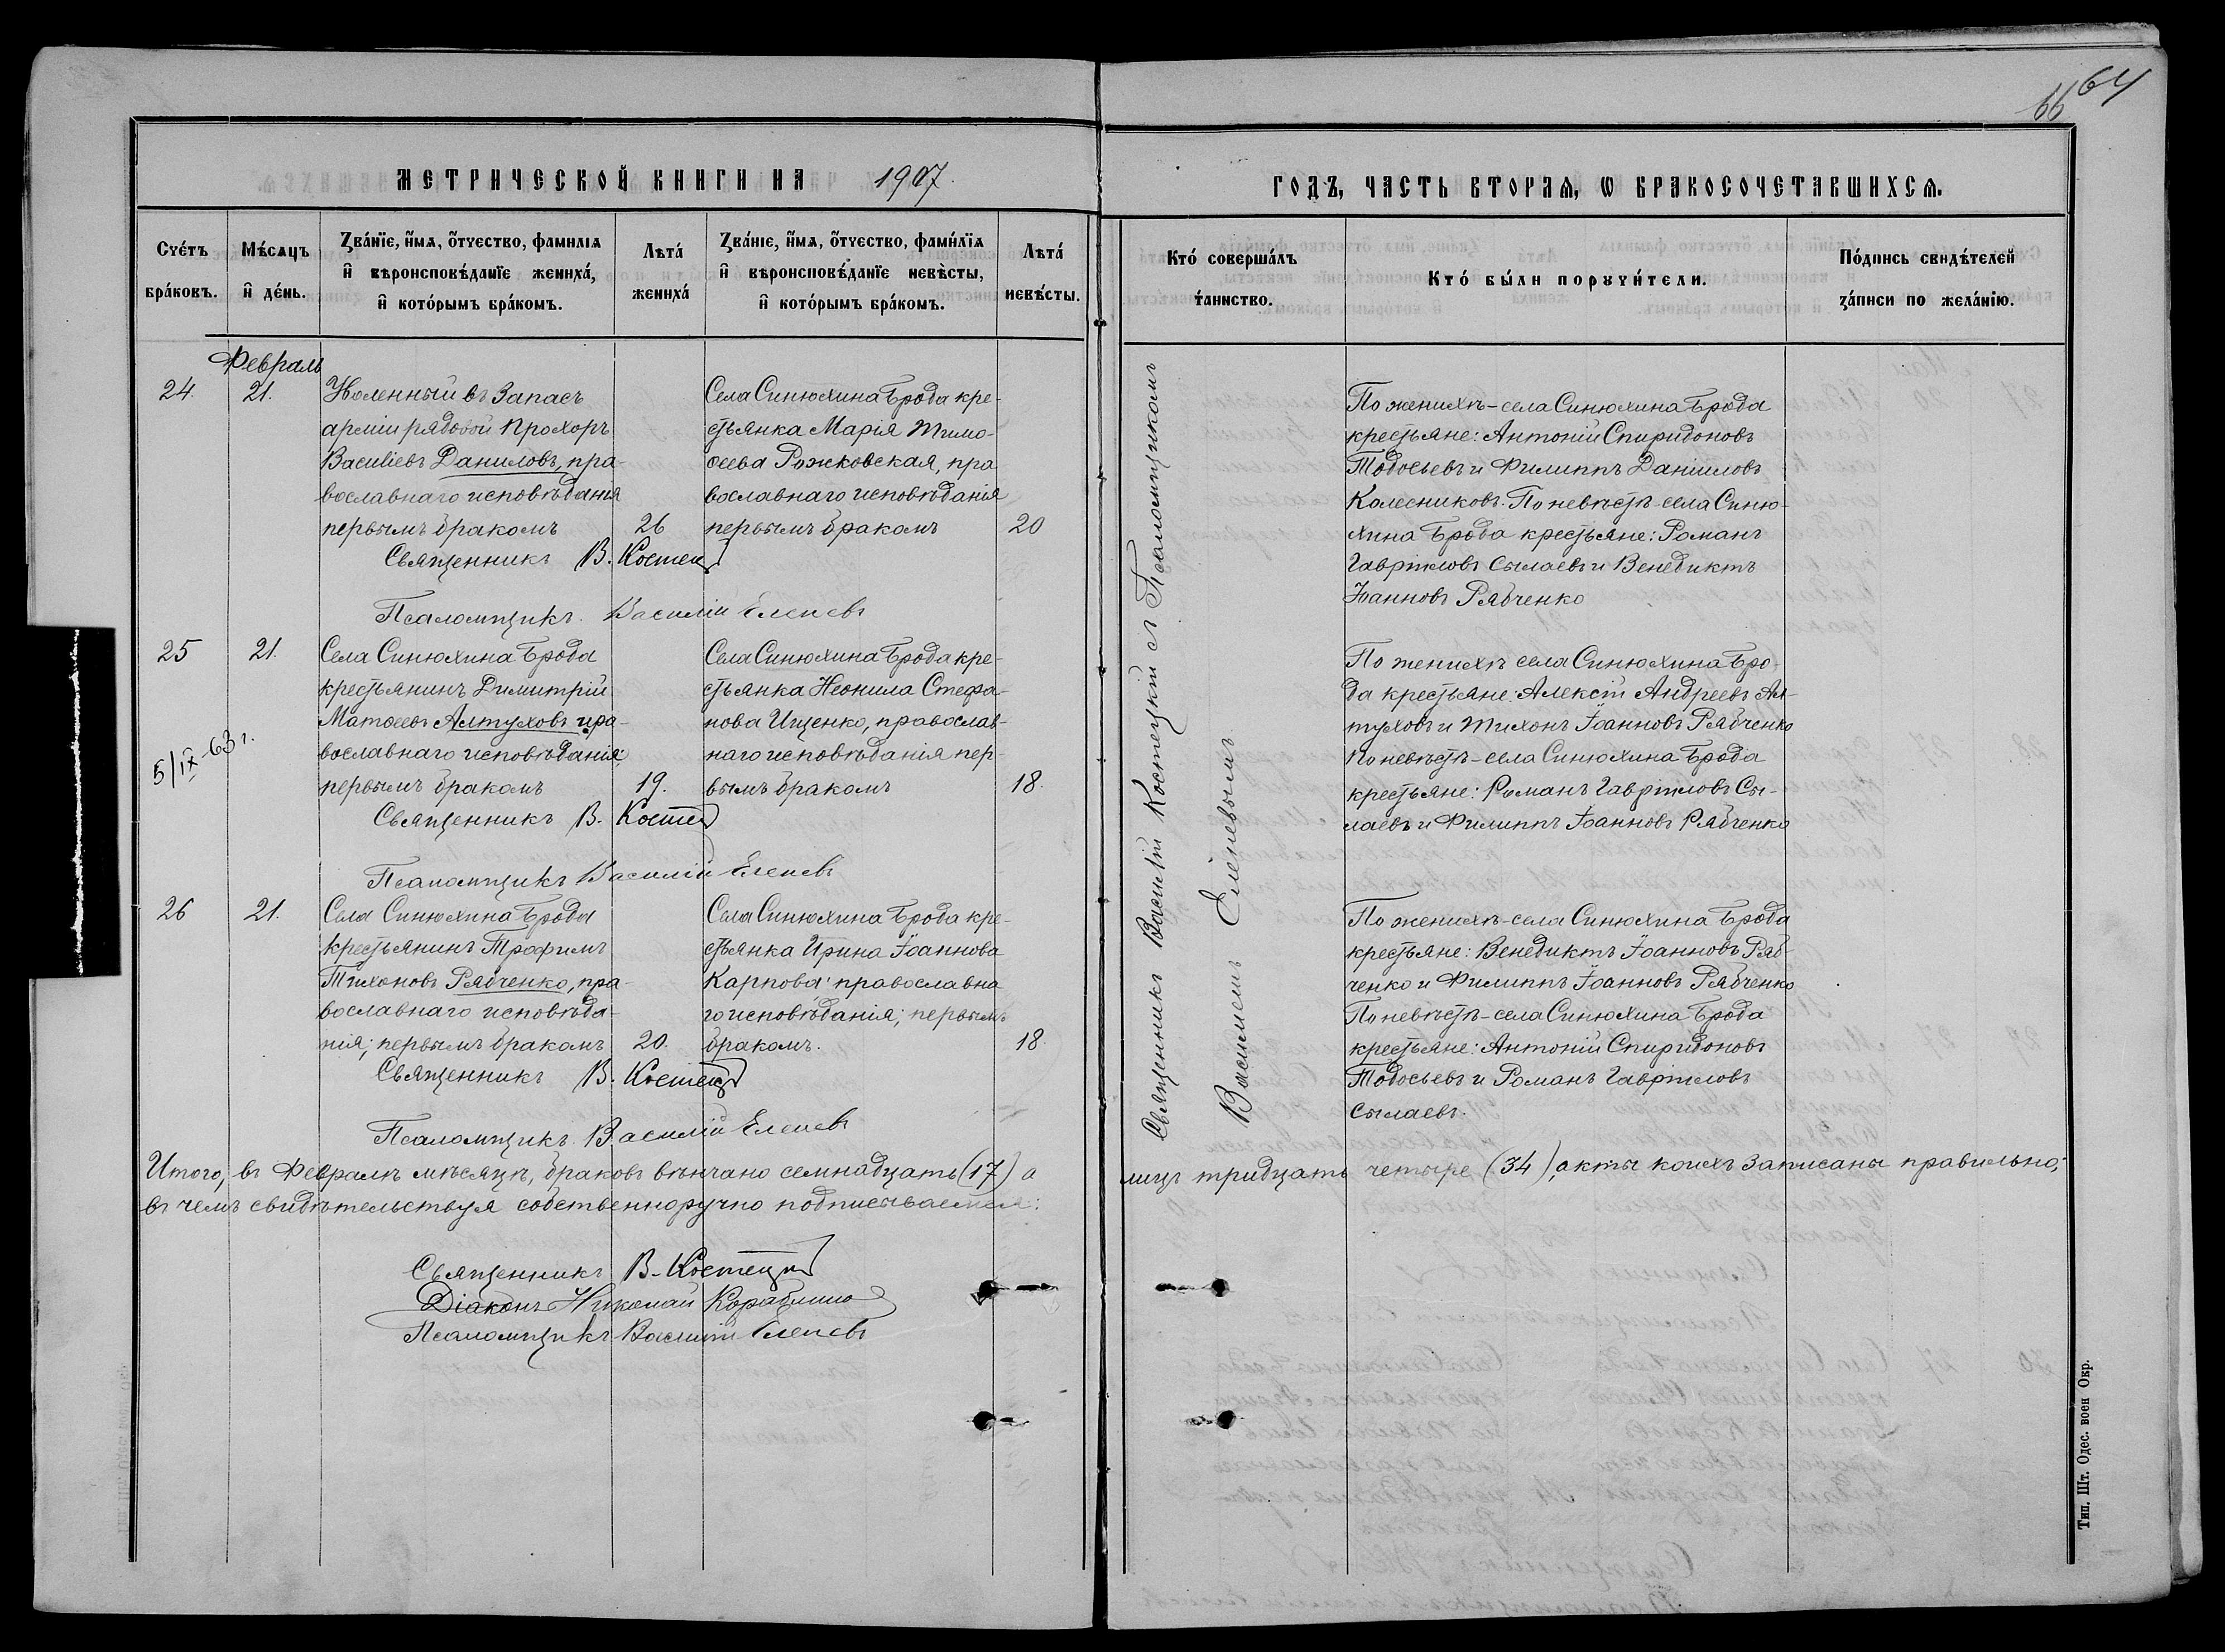 66 64
МЕТРИЧЕСКОЙ КНИГИ НА 1907.
ГОДЪ, ЧАСТЬ ВТОРАѦ, Ѡ БРАКОСОЧЕТАВШИХСѦ.
Счётъ браковъ.
Мѣсяцъ и день.
Званіе, имя, отчество, фамилія и вѣроисповѣданіе жениха, и которымъ бракомъ.
Лѣта жениха
Званіе, имя, отчество, фамилія и вѣроисповѣданіе невѣсты, и которымъ бракомъ.
Лѣта невѣсты.
Кто совершалъ таинство.
Кто были поручители.
Подпись свидѣтелей записи по желанію.
Февраль
24. 21.
Уволенный въ запасъ
арміи рядовой Прохоръ
Василіевъ Даниловъ, пра-
вославнаго исповѣданія
первымъ бракомъ 26
Села Синюхина Брода кре-
стьянка Марія Тимо-
ѳеева Рожковская, пра
вославнаго исповѣданія
первымъ бракомъ 20
Священникъ В. Костецкій
Псаломщикъ Василій Еленевъ
По женихѣ - села Синюхина Брода
крестьяне: Антоній Спиридоновъ
Тодосьевъ и Филиппъ Даніиловъ
Колесниковъ. По невѣстѣ - села Синю-
хина Брода крестьяне: Романъ
Гавріиловъ Сылаевъ и Венедиктъ
Іоанновъ Рябченко
25 21.
Села Синюхина Брода
крестьянинъ Димитрій
Матѳеевъ Алтуховъ пра-
вославнаго исповѣданія
первымъ бракомъ 19.
5/IX-63 г.
Села Синюхина Брода кре-
стьянка Неонила Стефа-
нова Ищенко, православ-
наго исповѣданія пер-
вымъ бракомъ 18.
Священникъ В. Костецкій
Псаломщикъ Василій Еленевъ
По женихѣ села Синюхина Бро-
да крестьяне: Алексій Андреевъ Ал-
туховъ и Тихонъ Іоанновъ Рябченко
По невѣстѣ - села Синюхина Брода
крестьяне: Романъ Гавріиловъ Сы-
лаевъ и Филиппъ Іоанновъ Рябченко
26 21.
Села Синюхина Брода
крестьянинъ Трофимъ
Тихоновъ Рябченко, пра-
вославнаго исповѣда-
нія; первымъ бракомъ 20.
Села Синюхина Брода кре-
стьянка Ирина Іоаннова
Карпова православна
го исповѣданія; первымъ
бракомъ. 18.
Священникъ В. Костецкій
Псаломщикъ Василій Еленевъ
По женихѣ - села Синюхина Брода
крестьяне: Венедиктъ Іоанновъ Ряб-
ченко и Филиппъ Іоанновъ Рябченко
По невѣстѣ - села Синюхина Брода
крестьяне: Антоній Спиридоновъ
Тодосьевъ и Романъ Гавріиловъ
Сылаевъ.
Священникъ Василій Костецкій съ Псаломщикомъ
Василіемъ Еленевымъ
Итого, въ Февралѣ мѣсяцѣ, браковъ вѣнчано семнадцать (17) а лицъ тридцать четыре (34), акты коихъ записаны правильно;
въ чемъ свидѣтельствуя собственноручно подписываемся:
Священникъ В. Костецкій
Діаконъ Николай
Псаломщикъ Василій Еленевъ
Тип. Шт. Одес. воен Окр.